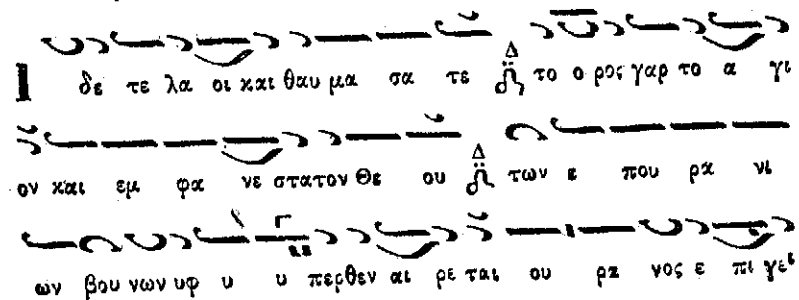 Ι δε τε λα οι και θαυ μα σα τε Δ το ο ρος γαρ το α γι
ον και εμ φα νε στατον Θε ου Δ των ε που ρα νι
ων βου νων υφ υ υ περθεν αι ρε ται ου ρα νος ε πι γει